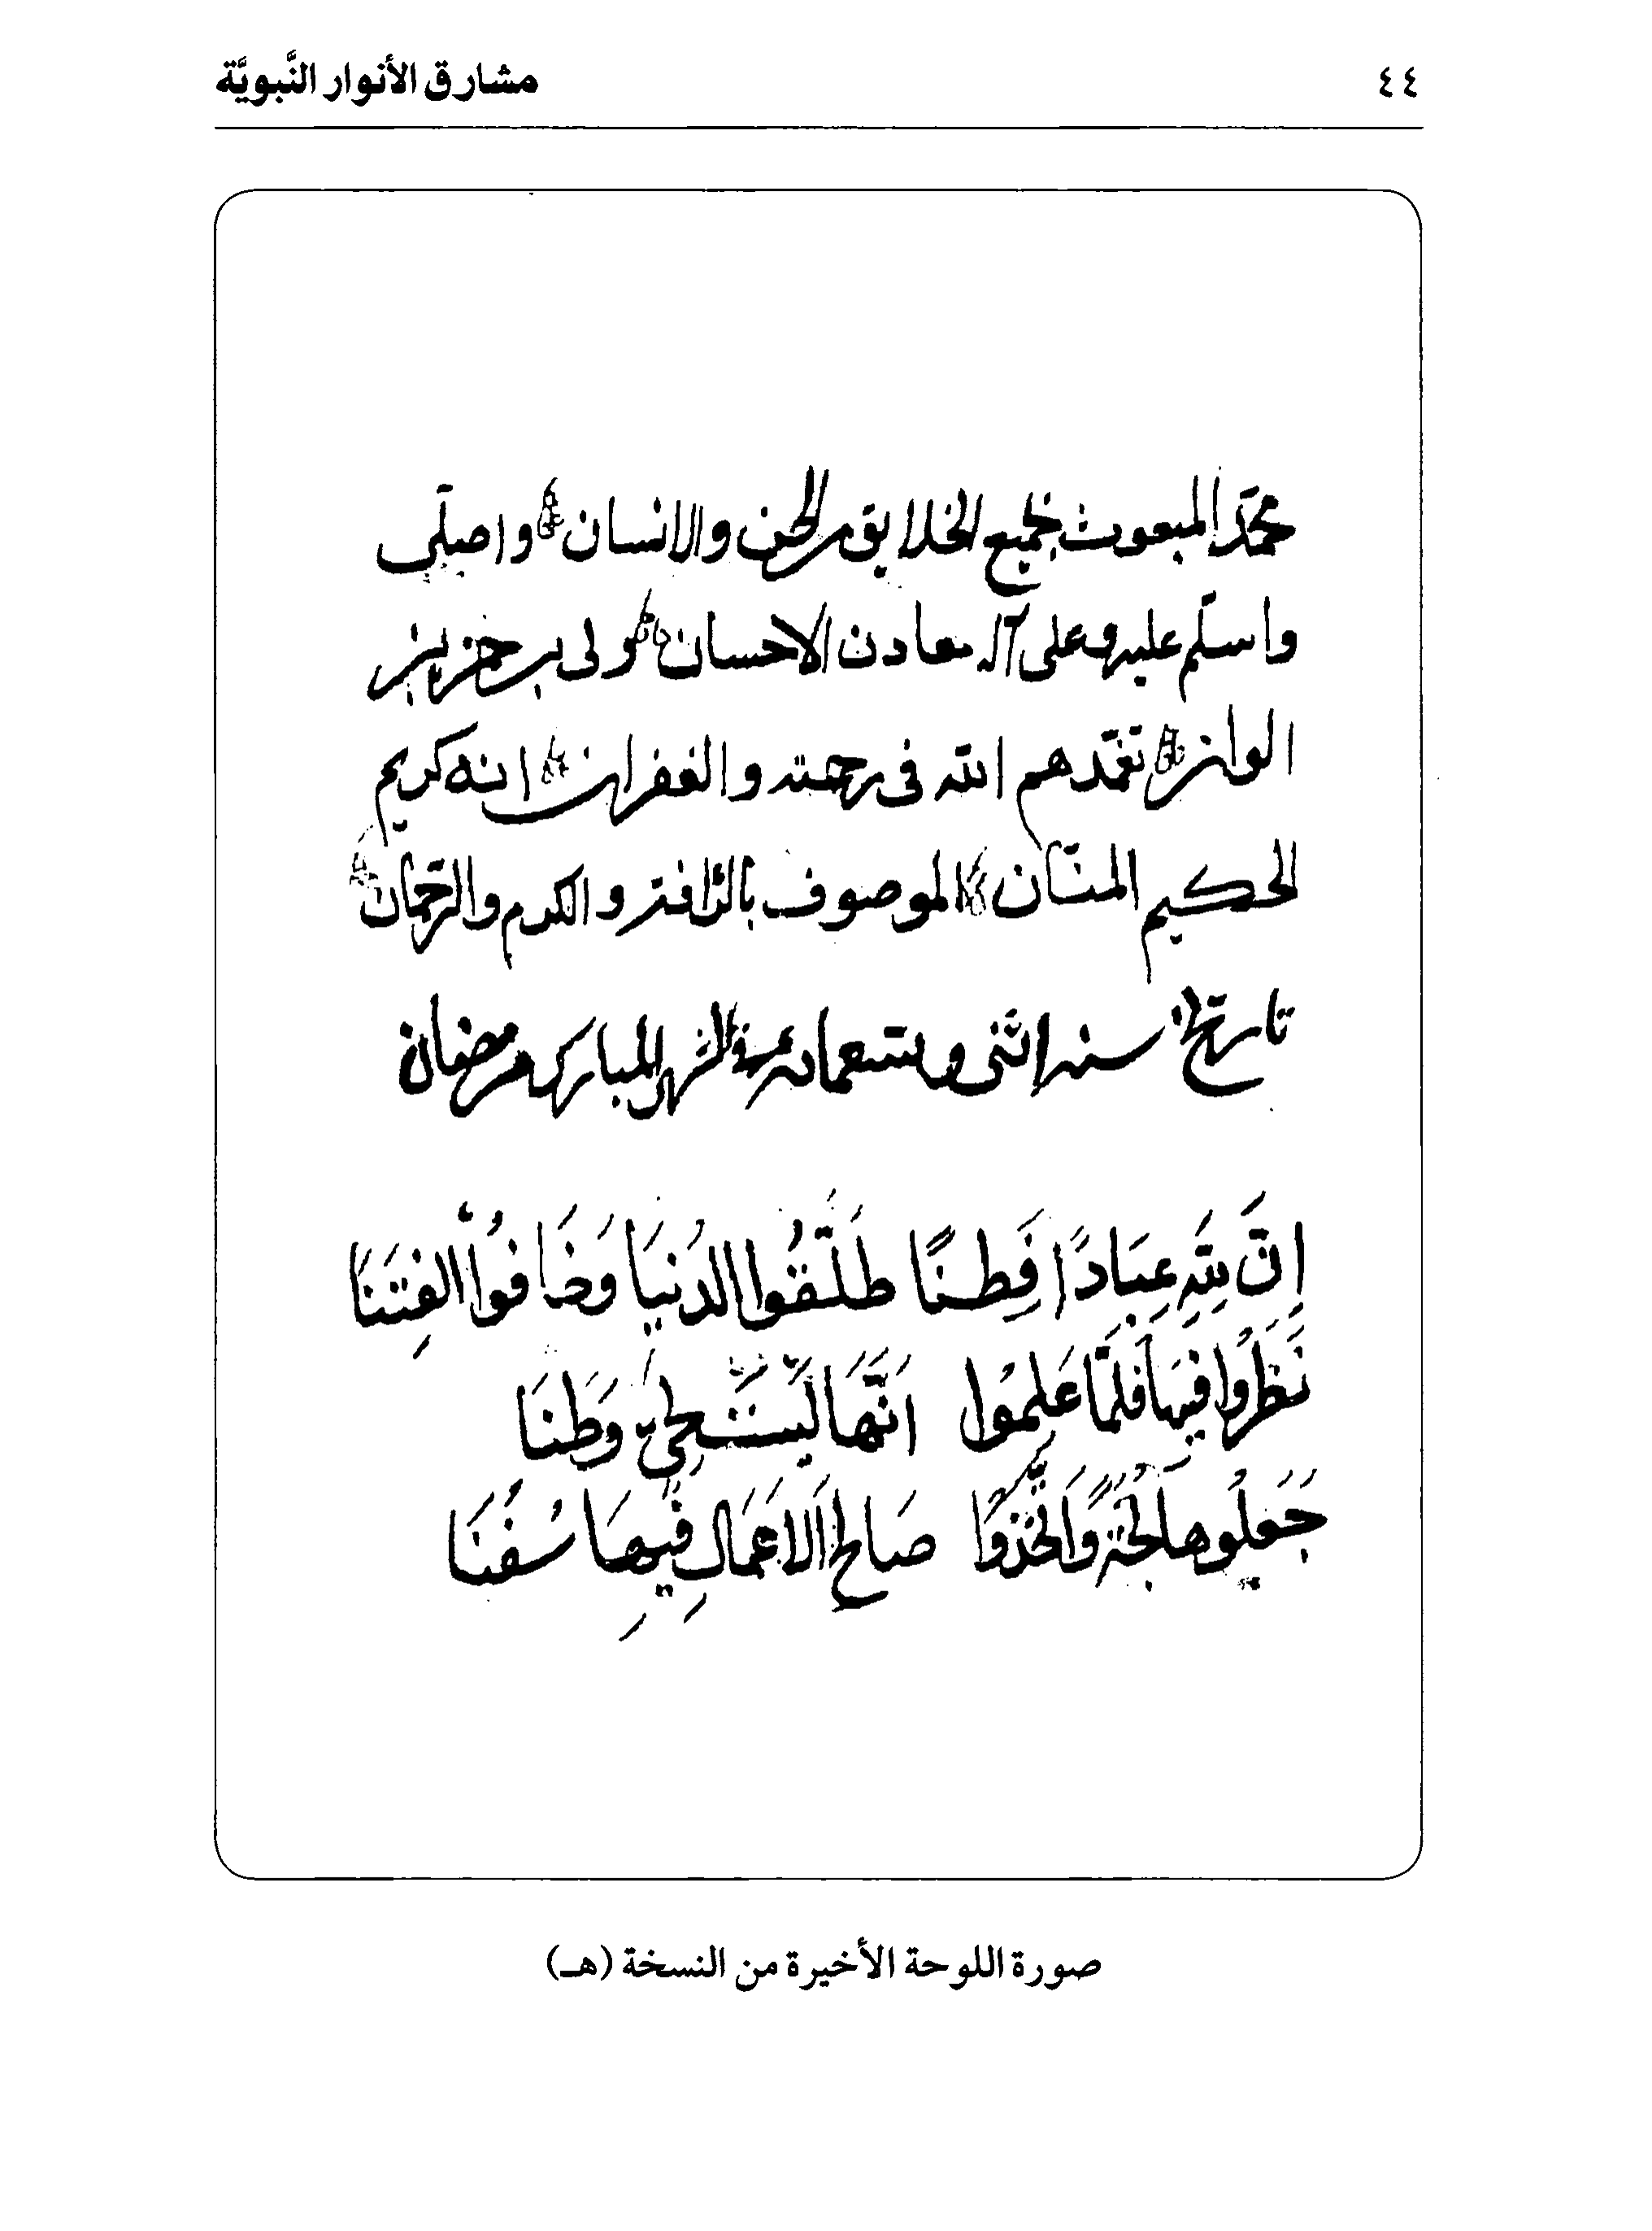 ٤٤ مشارق الأنوار النَّبويَّة
محمّد المبعوث لجميع الخلايق من الجن والانسان واصلّى
واسلّم عليه وعلى آله معادن الاحسان ولى بن حمزة بن
تغمّدهم الله فى رحمته والغفران انه كريم
الحكيم المنّان الموصوف بالرّافة والكرم والرّحمان
تاريخ سنه اثنى وتسعمائه المبارك رمضان
اِنَّ لِلّهِ عِبَادًا فَطِنًا طَلَّقُوا الدُنيَا وَخَافُوا الفِتَنَا
نَظَرُوا فيهَا فَلَمَّا عَلِمُوا اَنَّهَا لَيْسَتْ لِحَيٍّ وَطَنَا
جَعَلُوهَا لُجَّةً وَاتَّخَذُوا صَالِحَ الاَعمَالِ فِيهَا سُفُنَا
صورة اللوحة الأخيرة من النسخة (هـ)